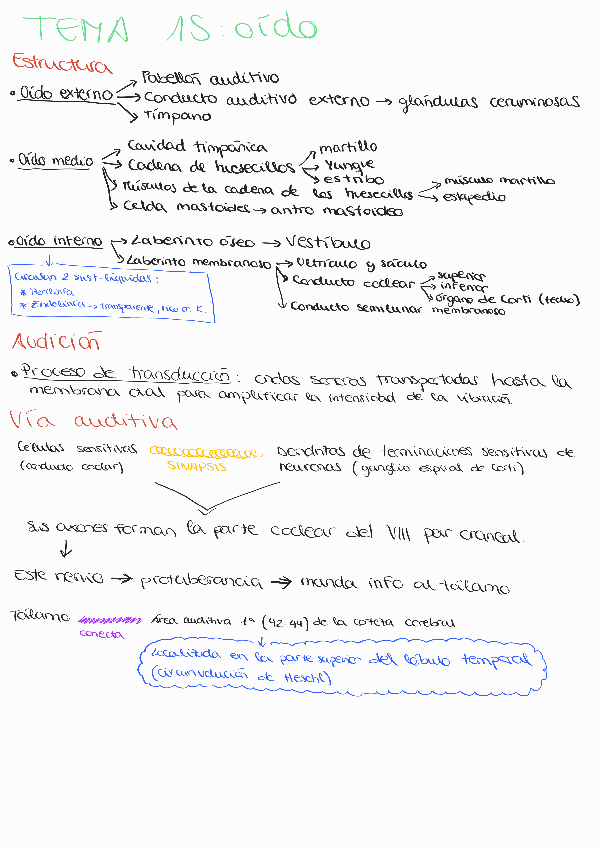 TEMA 15: oído
Estructura
• Oído externo → Pabellón auditivo
→ Conducto auditivo externo → glándulas ceruminosas
→ Tímpano
• Oído medio → Cavidad timpánica
→ Cadena de huesecillos → martillo
→ Yunque
→ estribo
→ Músculos de la cadena de los huesecillos → músculo martillo
→ estapedio
→ Celda mastoides → antro mastoideo
• Oído interno → Laberinto óseo → Vestíbulo
→ Laberinto membranoso → Utrículo y sáculo
→ Conducto coclear → superior
→ inferior
→ órgano de Corti (techo)
→ Conducto semilunar membranoso
Circulan 2 sust. líquidas:
* Perilinfa
* Endolinfa → transparente, rico en K.
Audición
• Proceso de transducción: ondas sonoras transportadas hasta la
membrana oval para amplificar la intensidad de la vibración.
Vía auditiva
Células sensitivas
(conducto coclear)
SINAPSIS
Dendritas de terminaciones sensitivas de
neuronas (ganglio espiral de Corti)
Sus axones forman la parte coclear del VIII par craneal.
Este nervio → protuberancia → manda info al tálamo
Tálamo
conecta
Área auditiva 1ª (42 44) de la corteza cerebral
Localizada en la parte superior del lóbulo temporal
(circunvolución de Heschl)